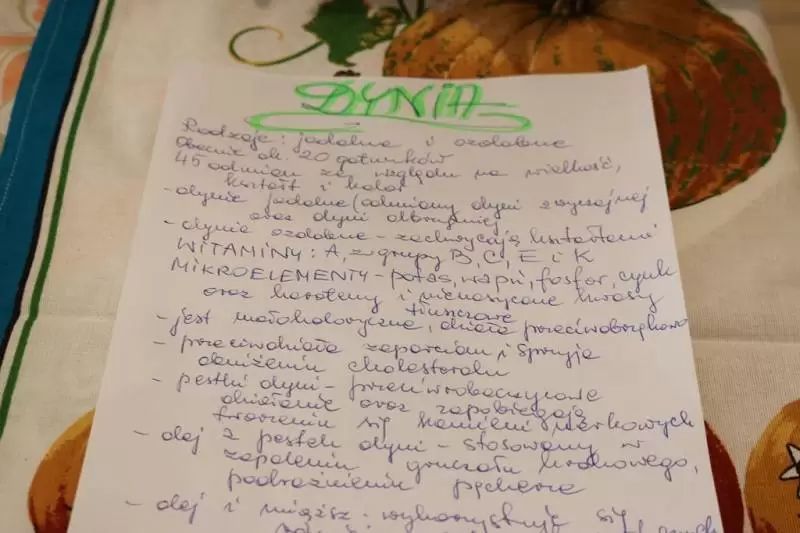 DYNIA
Rodzaje: jadalne i ozdobne
Obecnie ok. 20 gatunków
45 odmian ze względu na wielkość,
kształt i kolor
- dynie jadalne (odmiany dyni zwyczajnej
oraz dyni olbrzymiej
- dynie ozdobne - zachwycają kształtami
WITAMINY: A, z grupy B, C, E i K
MIKROELEMENTY - potas, wapń, fosfor, cynk
oraz karoteny i nienasycone kwasy
tłuszczowe
- jest małokaloryczna, działa przeciwobrzękowo
- przeciwdziała zaparciom i sprzyja
obniżeniu cholesterolu
- pestki dyni - przeciwrobaczycowe
działanie oraz zapobiegają
tworzeniu się kamieni nerkowych
- olej z pestek dyni - stosowany w
zapaleniu gruczołu krokowego,
podrażnieniu pęcherza
- olej i miąższ - wykorzystuje się